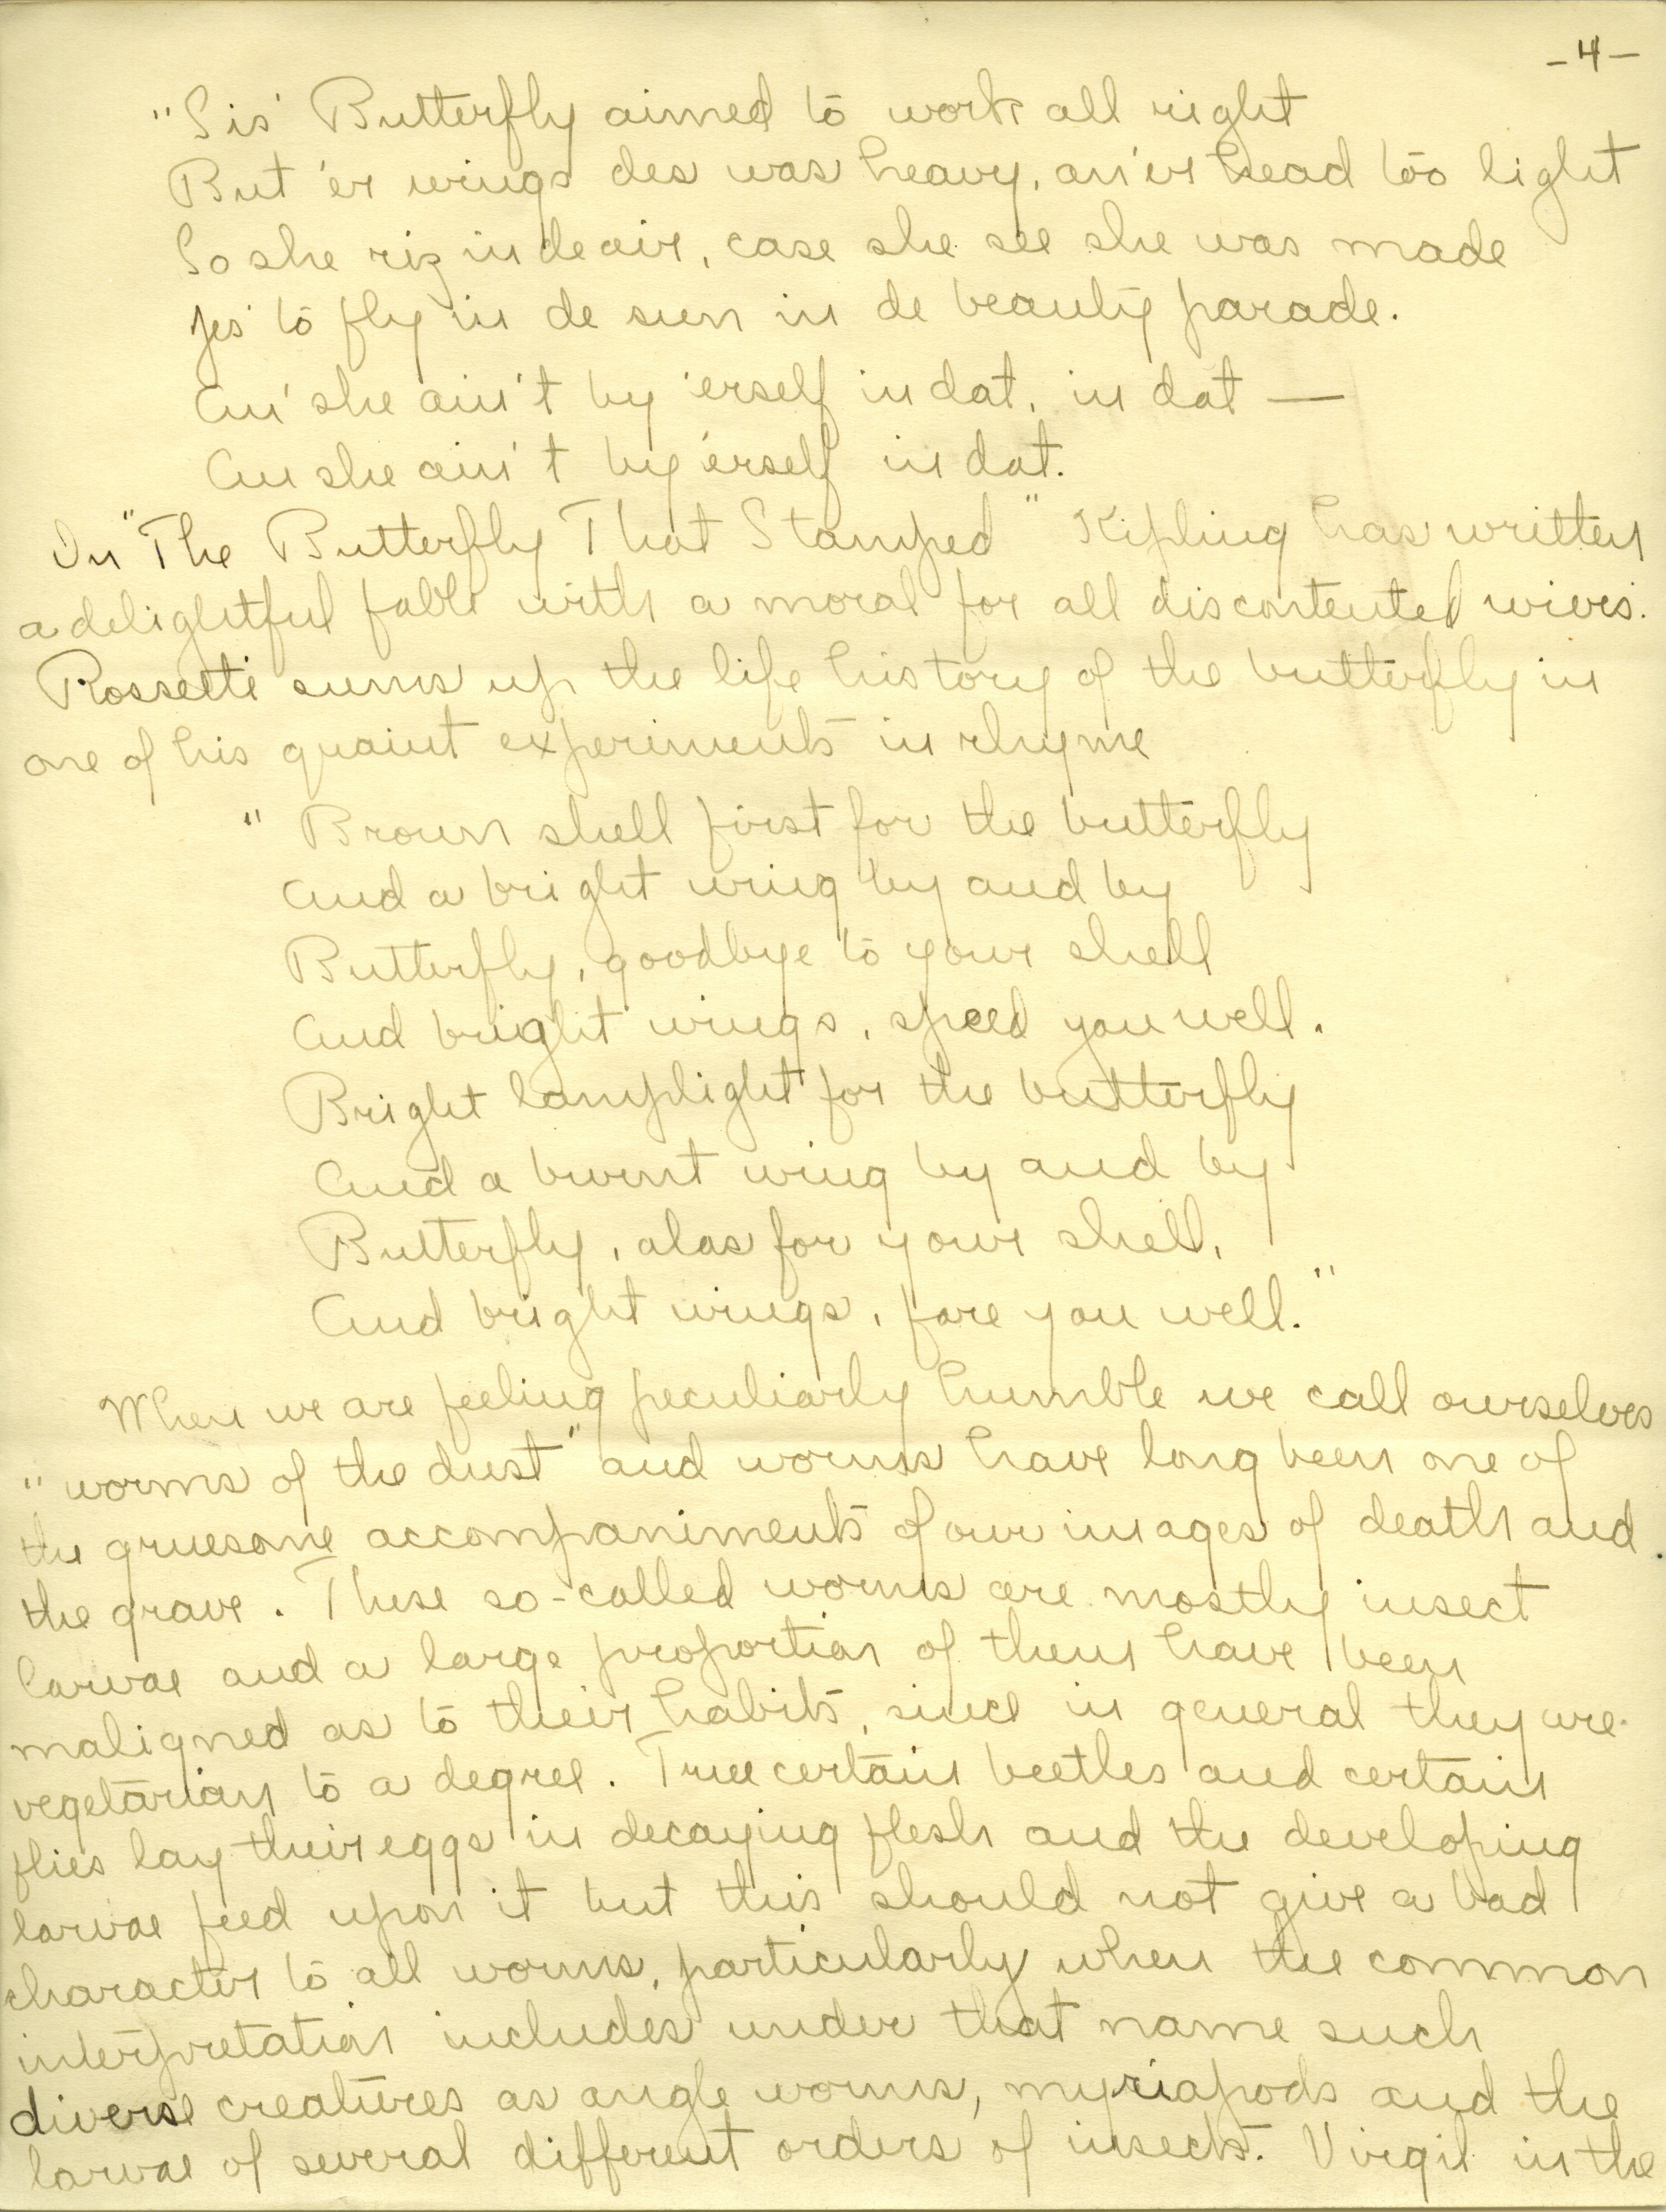 -4-
"Sis' Butterfly aimed to work all right
But 'er wings des was heavy, an' 'er head too light
So she riz in de air, case she see she was made
Jes' to fly in de sun in de beauty parade.
An' she ain't by 'erself in dat, in dat —
An she ain't by 'erself in dat.
In "The Butterfly That Stamped" Kipling has written
a delightful fable with a moral for all discontented wives.
Rossetti sums up the life history of the butterfly in
one of his quaint experiments in rhyme
"Brown shell first for the butterfly
And a bright wing by and by
Butterfly, goodbye to your shell
And bright wings, speed you well.
Bright lamplight for the butterfly
And a burnt wing by and by
Butterfly, alas for your shell,
And bright wings, fare you well."
When we are feeling peculiarly humble we call ourselves
"worms of the dust" and worms have long been one of
the gruesome accompaniments of our images of death and
the grave. These so-called worms are mostly insect
larvae and a large proportion of them have been
maligned as to their habits, since in general they are
vegetarian to a degree. True certain beetles and certain
flies lay their eggs in decaying flesh and the developing
larvae feed upon it but this should not give a bad
character to all worms, particularly when the common
interpretation includes under that name such
diverse creatures as angle worms, myriapods and the
larvae of several different orders of insects. Virgil in the